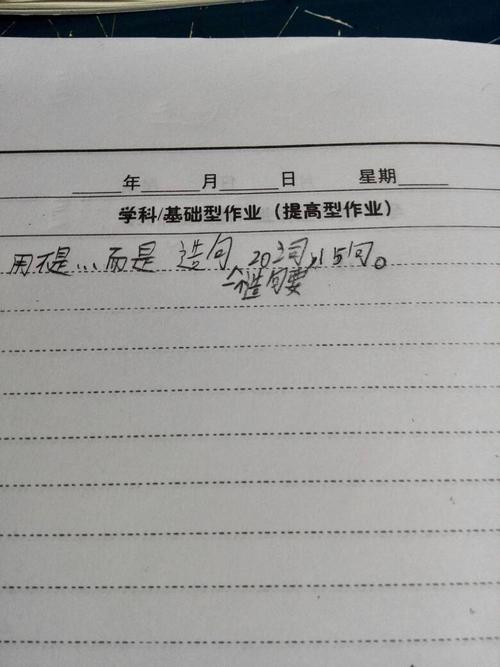 年 月 日 星期
学科/基础型作业（提高型作业）
用不是...而是 造句 20词,15句。
一个造句要